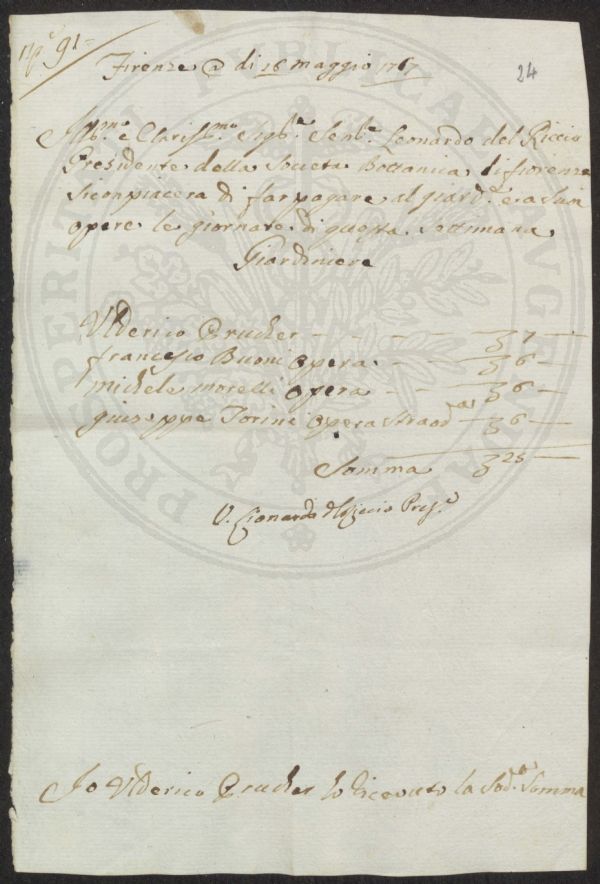 91=
24
Firenze @ di 16 maggio 1767
Ill.mo e Clariss.mo Sig.re Sen.re Leonardo del Riccio
Presidente della Societa Bottanica di fiorenza
Si conpiacera di far pagare al giard.e e a sua
opere le giornate di questa Settimana
Giardiniere
Ulderico Prucher 7
francesco Buoni Opera 6
michele morelli opera 6
giuseppe Torini opera straod.a 6
Somma 25
V. Lionardo del Riccio Pres.e
Io Ulderico Prucher ho Riceuuto la Sod.a Somma
PROSPERITATI PUBLICAE AUGENDAE